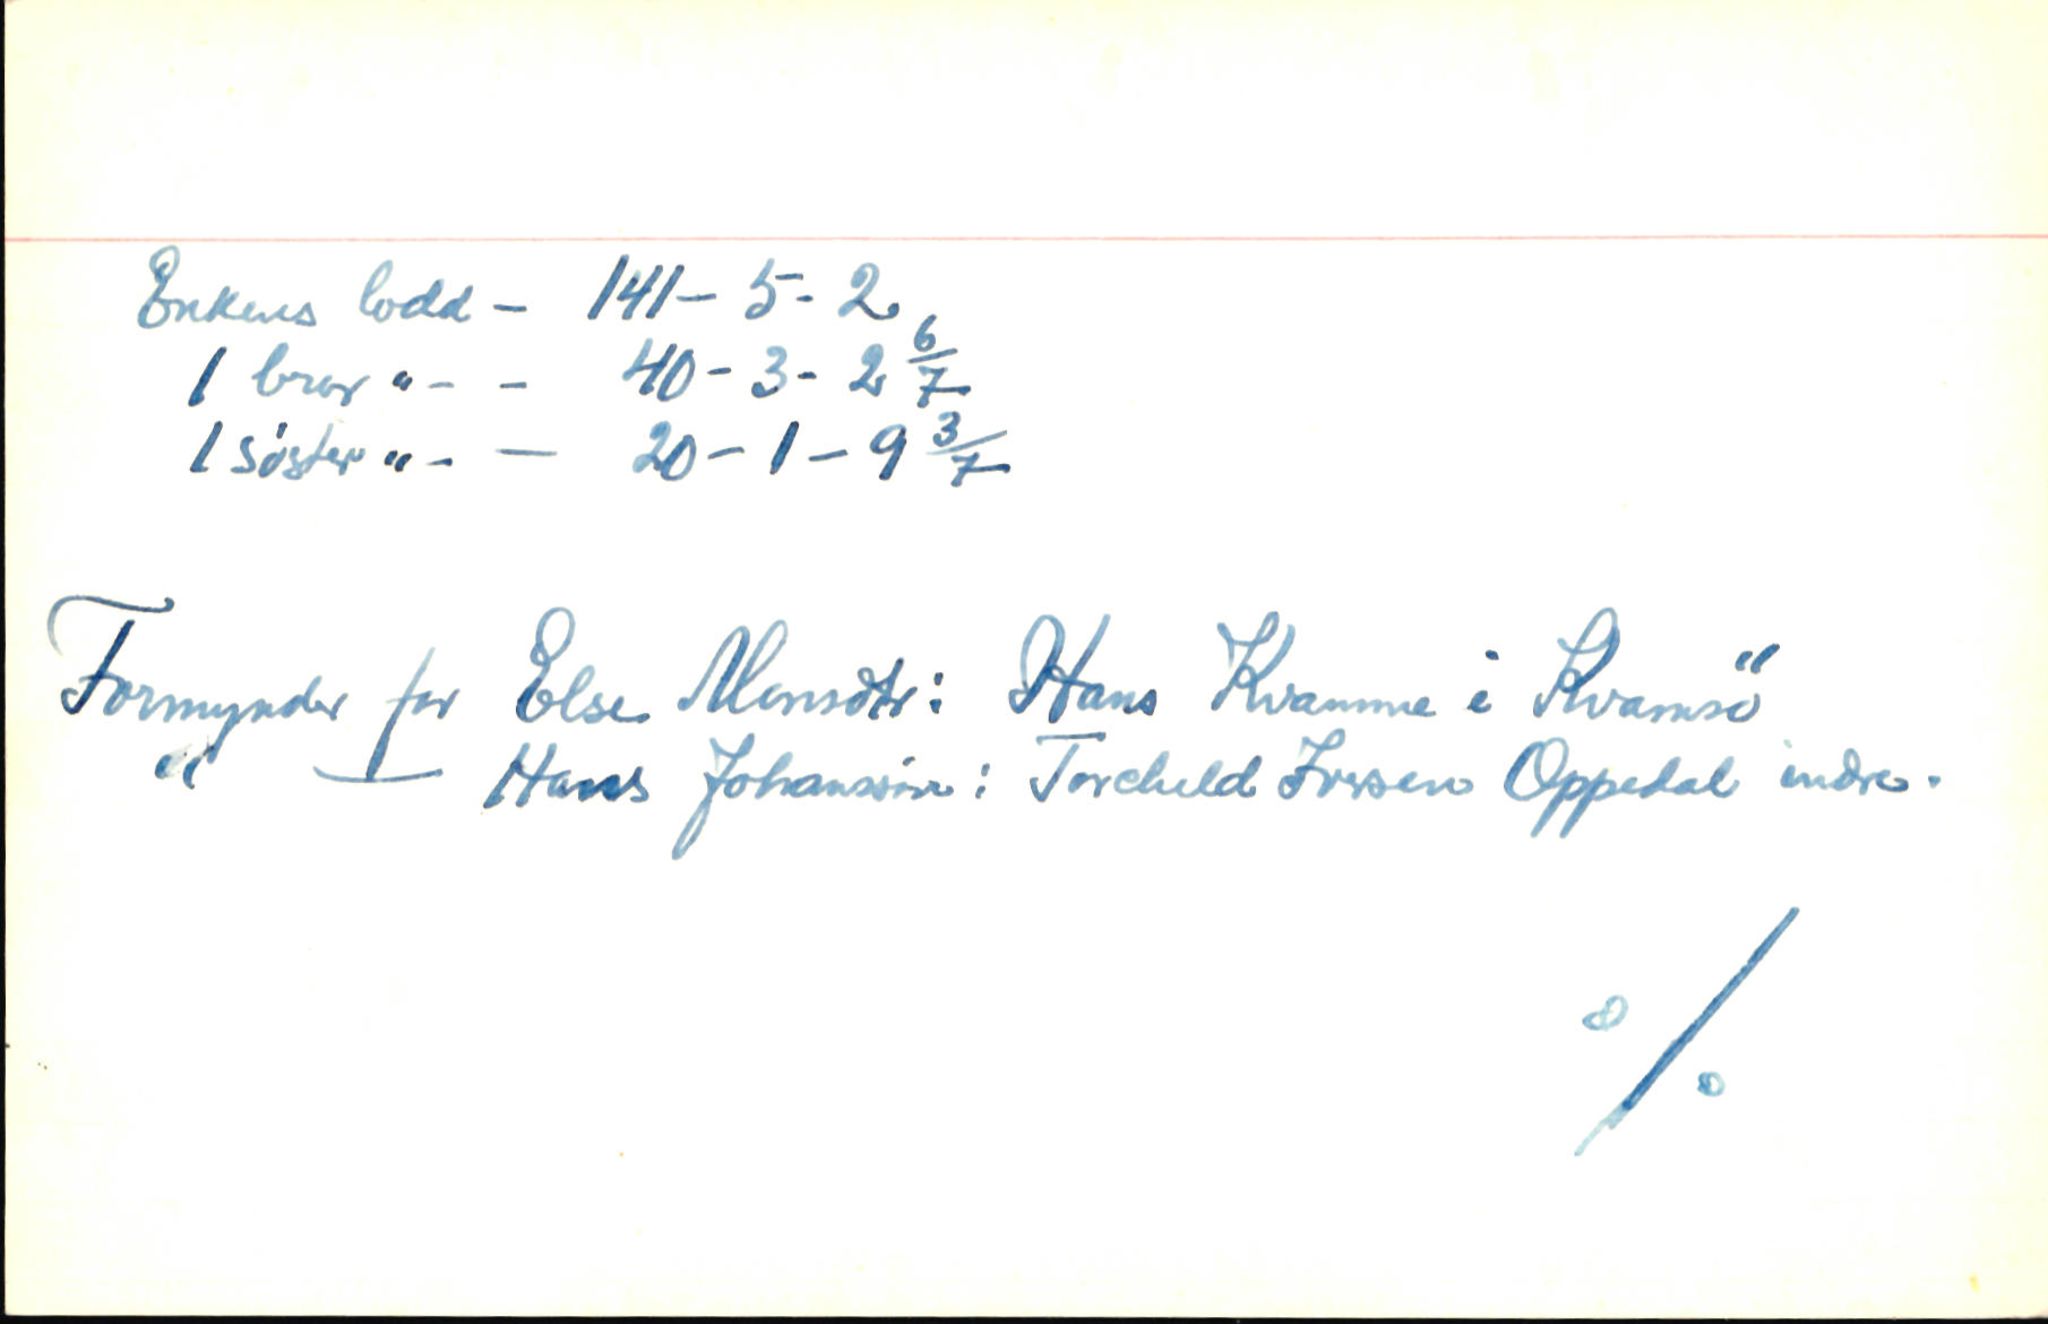 Enkens lodd - 141 - 5 - 2
1 bror " - - 40 - 3 - 2 6/7
1 söster " - — 20 - 1 - 9 3/7
Formynder for Else Monsdtr: Hans Kvamme i Kvamsö
" — Hans Johanssön: Torchild Iversen Oppedal indre.